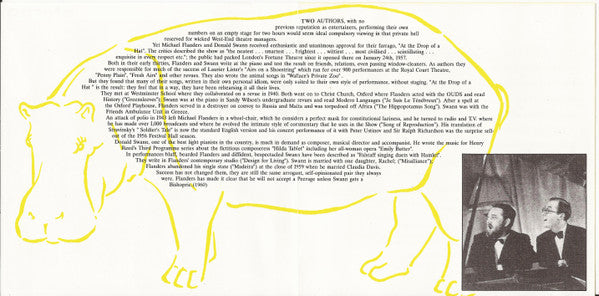 TWO AUTHORS, with no
previous reputation as entertainers, performing their own
numbers on an empty stage for two hours would seem ideal compulsory viewing in that private hell
reserved for wicked West-End theatre managers.
Yet Michael Flanders and Donald Swann received enthusiastic and unanimous approval for their farrago, "At the Drop of a
Hat". The critics described the show as "the neatest . . . smartest . . . brightest . . . wittiest . . . most civilised . . . scintillating . . .
exquisite in every respect etc."; the public had packed London's Fortune Theatre since it opened there on January 24th, 1957.
Both in their early thirties, Flanders and Swann write at the piano and test the result on friends, relations, even passing window-cleaners. As authors they
were responsible for much of the success of Laurier Lister's "Airs on a Shoestring" which ran for over 900 performances at the Royal Court Theatre,
"Penny Plain", "Fresh Airs" and other revues. They also wrote the animal songs in "Wallace's Private Zoo".
But they found that many of their songs, written in their own personal idiom, were only suited to their own style of performance, without staging. "At the Drop of a
Hat" is the result: they feel that in a way, they have been rehearsing it all their lives.
They met at Westminster School where they collaborated on a revue in 1940. Both went on to Christ Church, Oxford where Flanders acted with the OUDS and read
History ("Greensleeves"); Swann was at the piano in Sandy Wilson's undergraduate revues and read Modern Languages ("Je Suis Le Ténébreux"). After a spell at
the Oxford Playhouse, Flanders served in a destroyer on convoy to Russia and Malta and was torpedoed off Africa ("The Hippopotamus Song"). Swann was with the
Friends Ambulance Unit in Greece.
An attack of polio in 1943 left Michael Flanders in a wheel-chair, which he considers a perfect mask for constitutional laziness, and he turned to radio and T.V. where
he has made over 1,000 broadcasts and where he evolved the intimate style of commentary that he uses in the Show ("Song of Reproduction"). His translation of
Stravinsky's "Soldier's Tale" is now the standard English version and his concert performance of it with Peter Ustinov and Sir Ralph Richardson was the surprise sell-
out of the 1956 Festival Hall season.
Donald Swann, one of the best light pianists in the country, is much in demand as composer, musical director and accompanist. He wrote the music for Henry
Reed's Third Programme series about the fictitious composeress "Hilda Tablet" including her all-women opera "Emily Butter".
In performances bluff, bearded Flanders and diffident, bespectacled Swann have been described as "Falstaff singing duets with Hamlet".
They write in Flanders' contemporary studio ("Design for Living"). Swann is married with one daughter, Rachel; ("Misalliance");
Flanders abandoned his single state ("Madeira") at the close of 1959 when he married Claudia Davis.
Success has not changed them, they are still the same arrogant, self-opinionated pair they always
were. Flanders has made it clear that he will not accept a Peerage unless Swann gets a
Bishopric (1960)